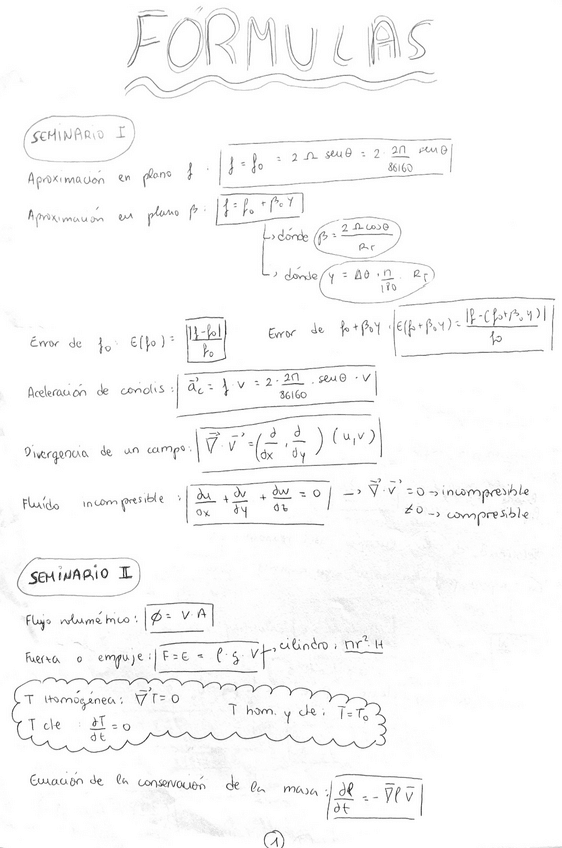 FÓRMULAS
SEMINARIO I
Aproximación en plano f: f = f₀ = 2 Ω senθ = 2 · 2π/86160 senθ
Aproximación en plano β: f = f₀ + β₀y
↳ dónde β = 2Ωcosθ/R_T
↳ dónde y = Δθ · π/180 · R_T
Error de f₀: E(f₀) = |f-f₀|/f₀ Error de f₀+β₀y: E(f₀+β₀y) = |f-(f₀+β₀y)|/f₀
Aceleración de coriolis: a⃗c = f · v = 2 · 2π/86160 · senθ · v
Divergencia de un campo: ∇⃗ · v⃗ = (∂/∂x, ∂/∂y) (u,v)
Fluído incompresible: du/dx + dv/dy + dw/dz = 0 → ∇⃗ · v⃗ = 0 → incompresible
≠0 → compresible.
SEMINARIO II
Flujo volumétrico: Ø = V · A
Fuerza o empuje: F = E = ρ · g · V → cilindro: πr² · H
T Homógénea: ∇⃗T = 0 T hom. y cte: T = T₀
T cte: ∂T/∂t = 0
Ecuación de la conservación de la masa: ∂ρ/∂t = - ∇⃗ρ v⃗
1